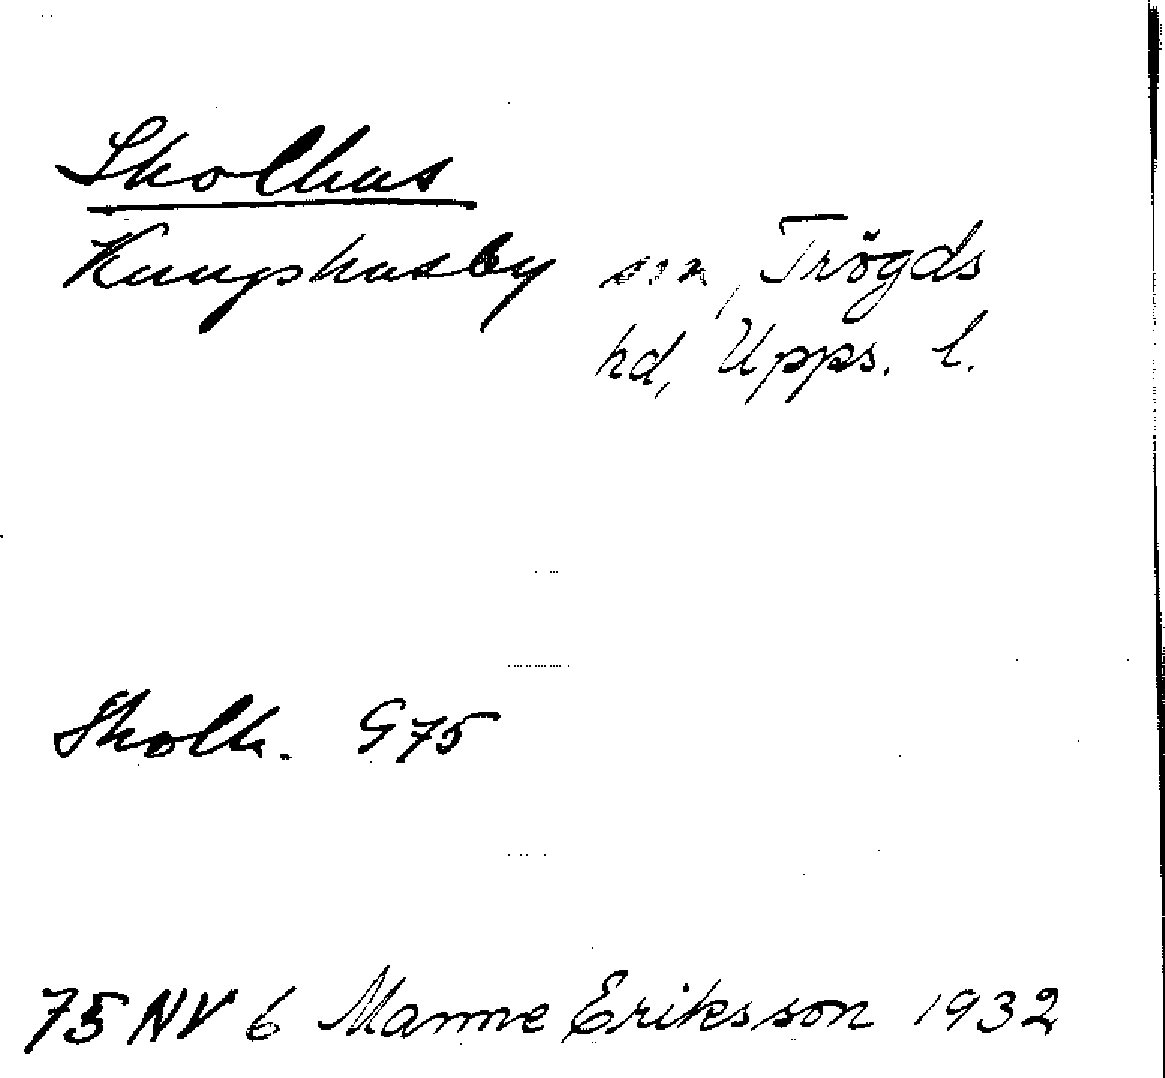 Skolhus
Kungshusby sn, Trögds
hd, Upps. l.
Skolh. G75
75 NV 6 Manne Eriksson 1932